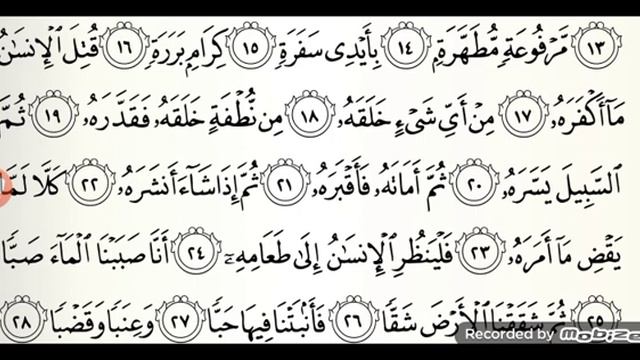 ١٣ مَّرْفُوعَةٍ مُّطَهَّرَةٍۭ ١٤ بِأَيْدِى سَفَرَةٍ ١٥ كِرَامٍۭ بَرَرَةٍ ١٦ قُتِلَ ٱلْإِنسَٰنُ
مَآ أَكْفَرَهُۥ ١٧ مِنْ أَىِّ شَىْءٍ خَلَقَهُۥ ١٨ مِن نُّطْفَةٍ خَلَقَهُۥ فَقَدَّرَهُۥ ١٩ ثُمَّ
ٱلسَّبِيلَ يَسَّرَهُۥ ٢٠ ثُمَّ أَمَاتَهُۥ فَأَقْبَرَهُۥ ٢١ ثُمَّ إِذَا شَآءَ أَنشَرَهُۥ ٢٢ كَلَّا لَمَّا
يَقْضِ مَآ أَمَرَهُۥ ٢٣ فَلْيَنظُرِ ٱلْإِنسَٰنُ إِلَىٰ طَعَامِهِۦٓ ٢٤ أَنَّا صَبَبْنَا ٱلْمَآءَ صَبًّا
٢٥ ثُمَّ شَقَقْنَا ٱلْأَرْضَ شَقًّا ٢٦ فَأَنۢبَتْنَا فِيهَا حَبًّا ٢٧ وَعِنَبًا وَقَضْبًا ٢٨
Recorded by